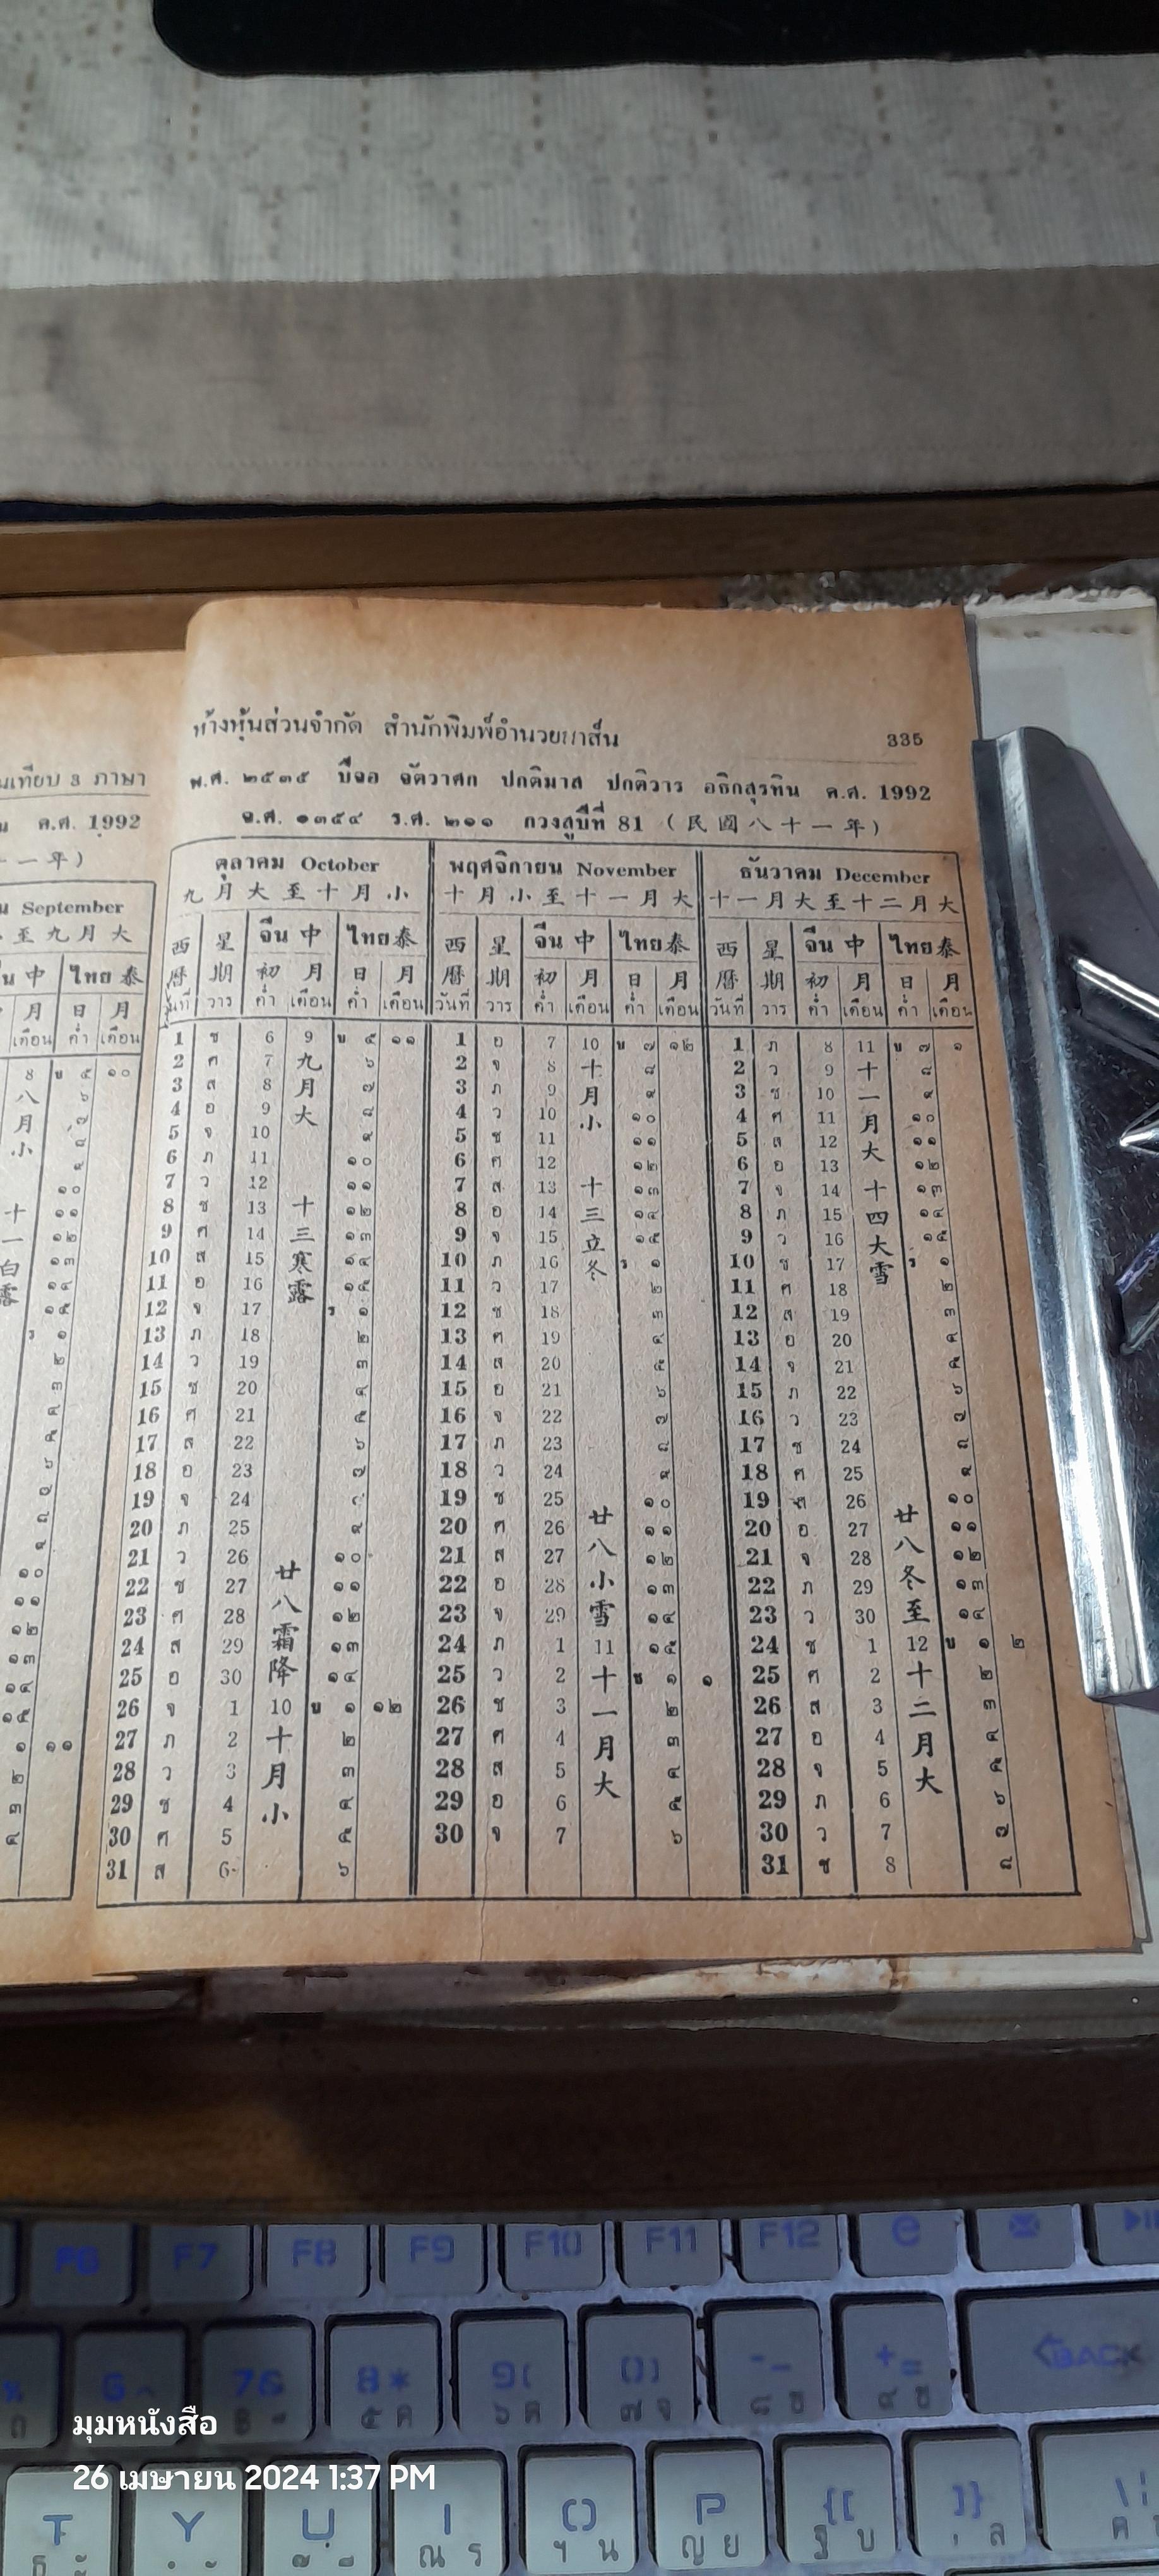 ห้างหุ้นส่วนจำกัด สำนักพิมพ์อำนวยสาส์น 335
พ.ศ. ๒๕๓๕ ปีจอ จัตวาศก ปกติมาส ปกติวาร อธิกสุรทิน ค.ศ. 1992
จ.ศ. ๑๓๕๔ ร.ศ. ๒๑๑ กวงสูปีที่ 81 (民國八十一年)
ตุลาคม October พฤศจิกายน November ธันวาคม December
九月大至十月小 十月小至十一月大 十一月大至十二月大
西 星 จีน中 ไทย泰 西 星 จีน中 ไทย泰 西 星 จีน中 ไทย泰
曆 期 初 月 日 月 曆 期 初 月 日 月 曆 期 初 月 日 月
วันที่ วาร ค่ำ เดือน ค่ำ เดือน วันที่ วาร ค่ำ เดือน ค่ำ เดือน วันที่ วาร ค่ำ เดือน ค่ำ เดือน
1 ช 6 9 ข ๕ ๑๑ 1 อ 7 10 ข ๗ ๑๒ 1 ภ 8 11 ข ๗ ๑
2 ศ 7 九 ๖ 2 จ 8 十 ๘ 2 ว 9 十 ๘
3 ส 8 月 ๗ 3 ภ 9 月 ๙ 3 ช 10 一 ๙
4 อ 9 大 ๘ 4 ว 10 小 ๑๐ 4 ศ 11 月 ๑๐
5 จ 10 ๙ 5 ช 11 ๑๑ 5 ส 12 大 ๑๑
6 ภ 11 ๑๐ 6 ศ 12 ๑๒ 6 อ 13 ๑๒
7 ว 12 ๑๑ 7 ส 13 十 ๑๓ 7 จ 14 十 ๑๓
8 ช 13 十 ๑๒ 8 อ 14 三 ๑๔ 8 ภ 15 四 ๑๔
9 ศ 14 三 ๑๓ 9 จ 15 立 ๑๕ 9 ว 16 大 ๑๕
10 ส 15 寒 ๑๔ 10 ภ 16 冬 ร ๑ 10 ช 17 雪 ร ๑
11 อ 16 露 ๑๕ 11 ว 17 ๒ 11 ศ 18 ๒
12 จ 17 ร ๑ 12 ช 18 ๓ 12 ส 19 ๓
13 ภ 18 ๒ 13 ศ 19 ๔ 13 อ 20 ๔
14 ว 19 ๓ 14 ส 20 ๕ 14 จ 21 ๕
15 ช 20 ๔ 15 อ 21 ๖ 15 ภ 22 ๖
16 ศ 21 ๕ 16 จ 22 ๗ 16 ว 23 ๗
17 ส 22 ๖ 17 ภ 23 ๘ 17 ช 24 ๘
18 อ 23 ๗ 18 ว 24 ๙ 18 ศ 25 ๙
19 จ 24 19 ช 25 ๑๐ 19 ส 26 ๑๐
20 ภ 25 ๙ 20 ศ 26 廿 ๑๑ 20 อ 27 廿 ๑๑
21 ว 26 ๑๐ 21 ส 27 八 ๑๒ 21 จ 28 八 ๑๒
22 ช 27 廿 ๑๑ 22 อ 28 小 ๑๓ 22 ภ 29 冬 ๑๓
23 ศ 28 八 ๑๒ 23 จ 29 雪 ๑๔ 23 ว 30 至 ๑๔
24 ส 29 霜 ๑๓ 24 ภ 1 11 ๑๕ 24 ช 1 12 ข ๑ ๒
25 อ 30 降 ๑๔ 25 ว 2 十 ข ๑ ๑ 25 ศ 2 十 ๒
26 จ 1 10 ข ๑ ๑๒ 26 ช 3 一 ๒ 26 ส 3 二 ๓
27 ภ 2 十 ๒ 27 ศ 4 月 ๓ 27 อ 4 月 ๔
28 ว 3 月 ๓ 28 ส 5 大 ๔ 28 จ 5 大 ๕
29 ช 4 小 ๔ 29 อ 6 ๕ 29 ภ 6 ๖
30 ศ 5 ๕ 30 จ 7 ๖ 30 ว 7 ๗
31 ส 6 ๖ 31 ช 8 ๘
เทียบ 3 ภาษา
ค.ศ. 1992
一年)
September
至九月大
中 ไทย泰
月 日 月
เดือน ค่ำ เดือน
8 ข ๕ ๑๐
八 ๖
月 ๗
小 ๘
๙
๑๐
十 ๑๑
一 ๑๒
白 ๑๓
露 ๑๔
๑๕
ร ๑
๒
๓
๔
๕
๖
๗
๘
๙
๑๐
๑๑
๑๒
๑๓
๑๔
๑๕
๑ ๑๑
๒
๓
๔
F6 F7 F8 F9 F10 F11 F12 e
BACK
T Y U I O P
ณ ร ฯ น ญ ย ฐ บ
มุมหนังสือ
26 เมษายน 2024 1:37 PM